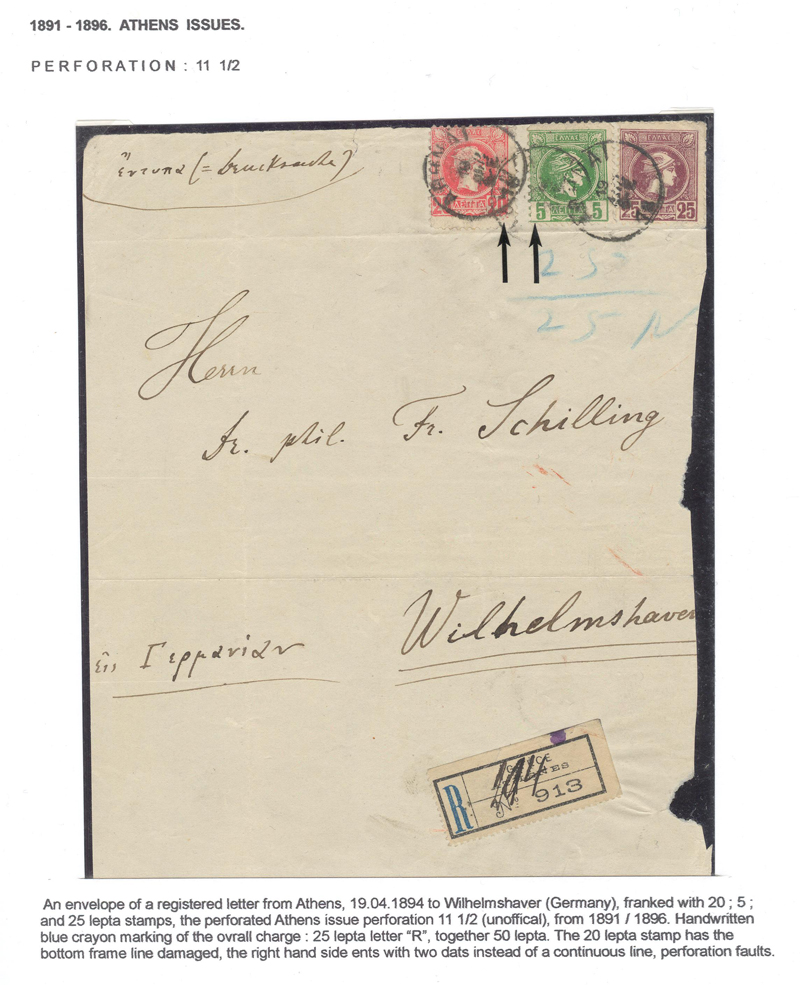 1891 - 1896. ATHENS ISSUES.
PERFORATION : 11 1/2
ἔντυπα (= Drucksache)
ΕΛΛΑΣ ΕΛΛΑΣ ΕΛΛΑΣ
ΛΕΠΤΑ 20 5 ΛΕΠΤΑ 5 25 ΛΕΠΤΑ 25
25
25 R
Herrn
Dr. phil. Fr. Schilling
Wilhelmshaven
εἰς Γερμανίαν
R
No 913
An envelope of a registered letter from Athens, 19.04.1894 to Wilhelmshaver (Germany), franked with 20 ; 5 ;
and 25 lepta stamps, the perforated Athens issue perforation 11 1/2 (unoffical), from 1891 / 1896. Handwritten
blue crayon marking of the ovrall charge : 25 lepta letter “R”, together 50 lepta. The 20 lepta stamp has the
bottom frame line damaged, the right hand side ents with two dats instead of a continuous line, perforation faults.